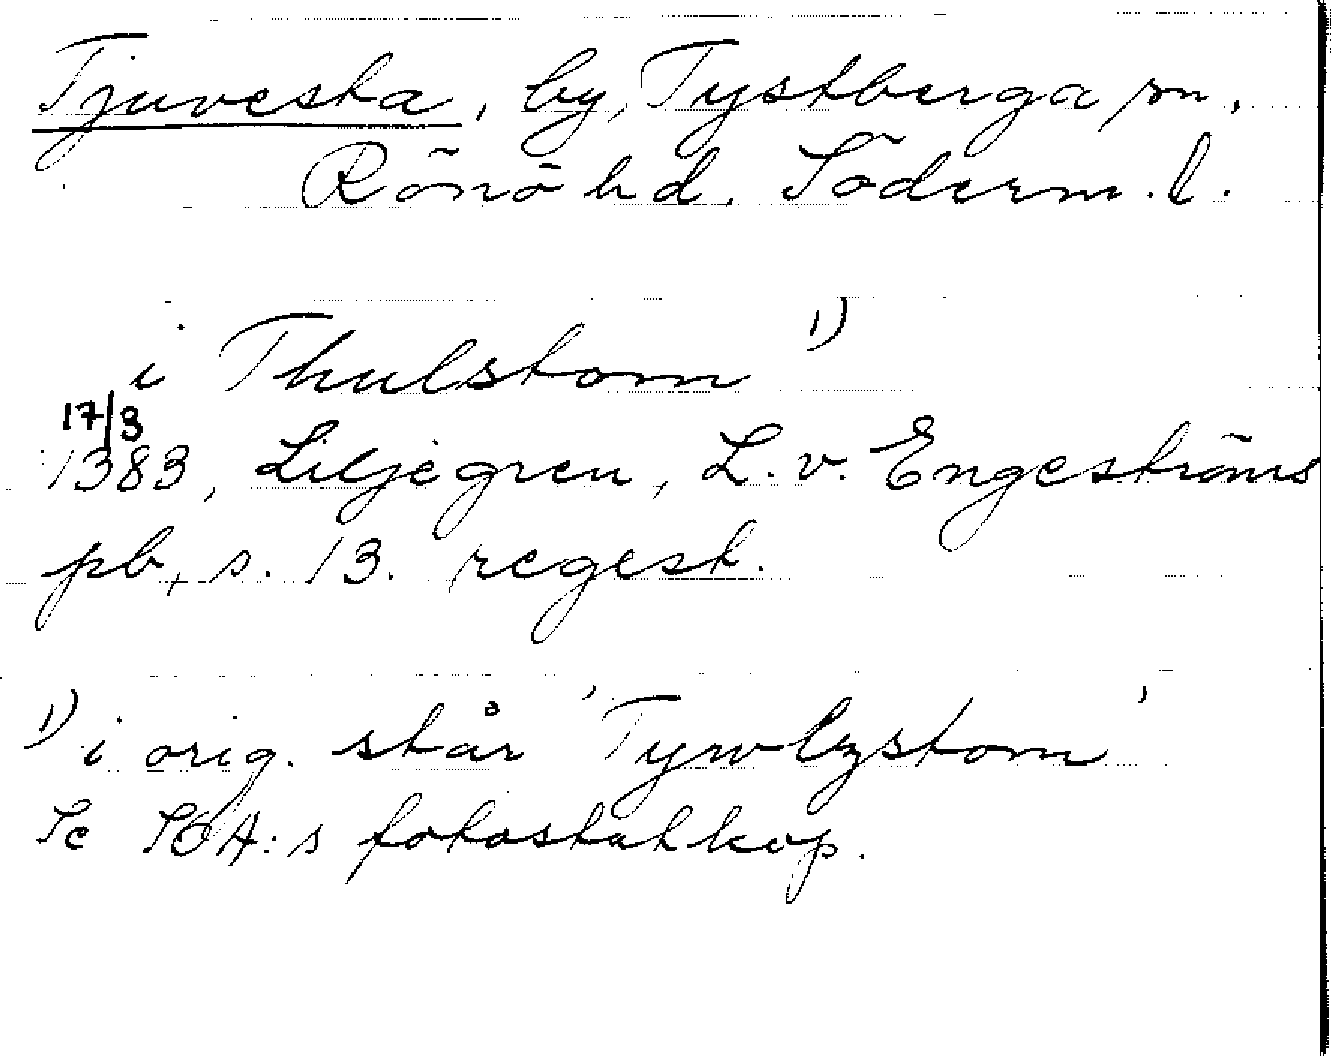 Tjuvesta, by, Tystberga sn,
Rönö hd. Söderm. l.
i Thulstom 1)
17/3
1383, Liljegren, L. v. Engeströms
pb, s. 13. regest.
1) i orig. står 'Tywlzstom'
Se SOA:s fotostatkop.